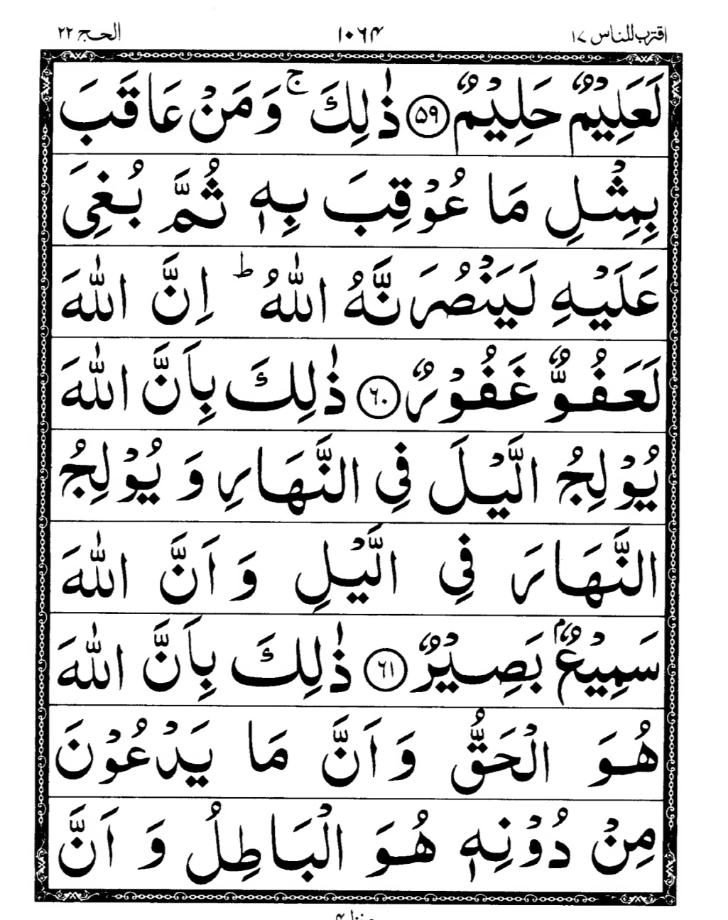 اقترب للناس ۱۷ ۱۰۶۴ الحج ۲۲
لَعَلِیْمٌ حَلِیْمٌ ۝۵۹ ذٰلِكَ ۚ وَمَنْ عَاقَبَ
بِمِثْلِ مَا عُوْقِبَ بِهٖ ثُمَّ بُغِیَ
عَلَیْهِ لَیَنْصُرَنَّهُ اللّٰهُ ؕ اِنَّ اللّٰهَ
لَعَفُوٌّ غَفُوْرٌ ۝۶۰ ذٰلِكَ بِاَنَّ اللّٰهَ
یُوْلِجُ الَّیْلَ فِی النَّهَارِ وَ یُوْلِجُ
النَّهَارَ فِی الَّیْلِ وَ اَنَّ اللّٰهَ
سَمِیْعٌۢ بَصِیْرٌ ۝۶۱ ذٰلِكَ بِاَنَّ اللّٰهَ
هُوَ الْحَقُّ وَ اَنَّ مَا یَدْعُوْنَ
مِنْ دُوْنِهٖ هُوَ الْبَاطِلُ وَ اَنَّ